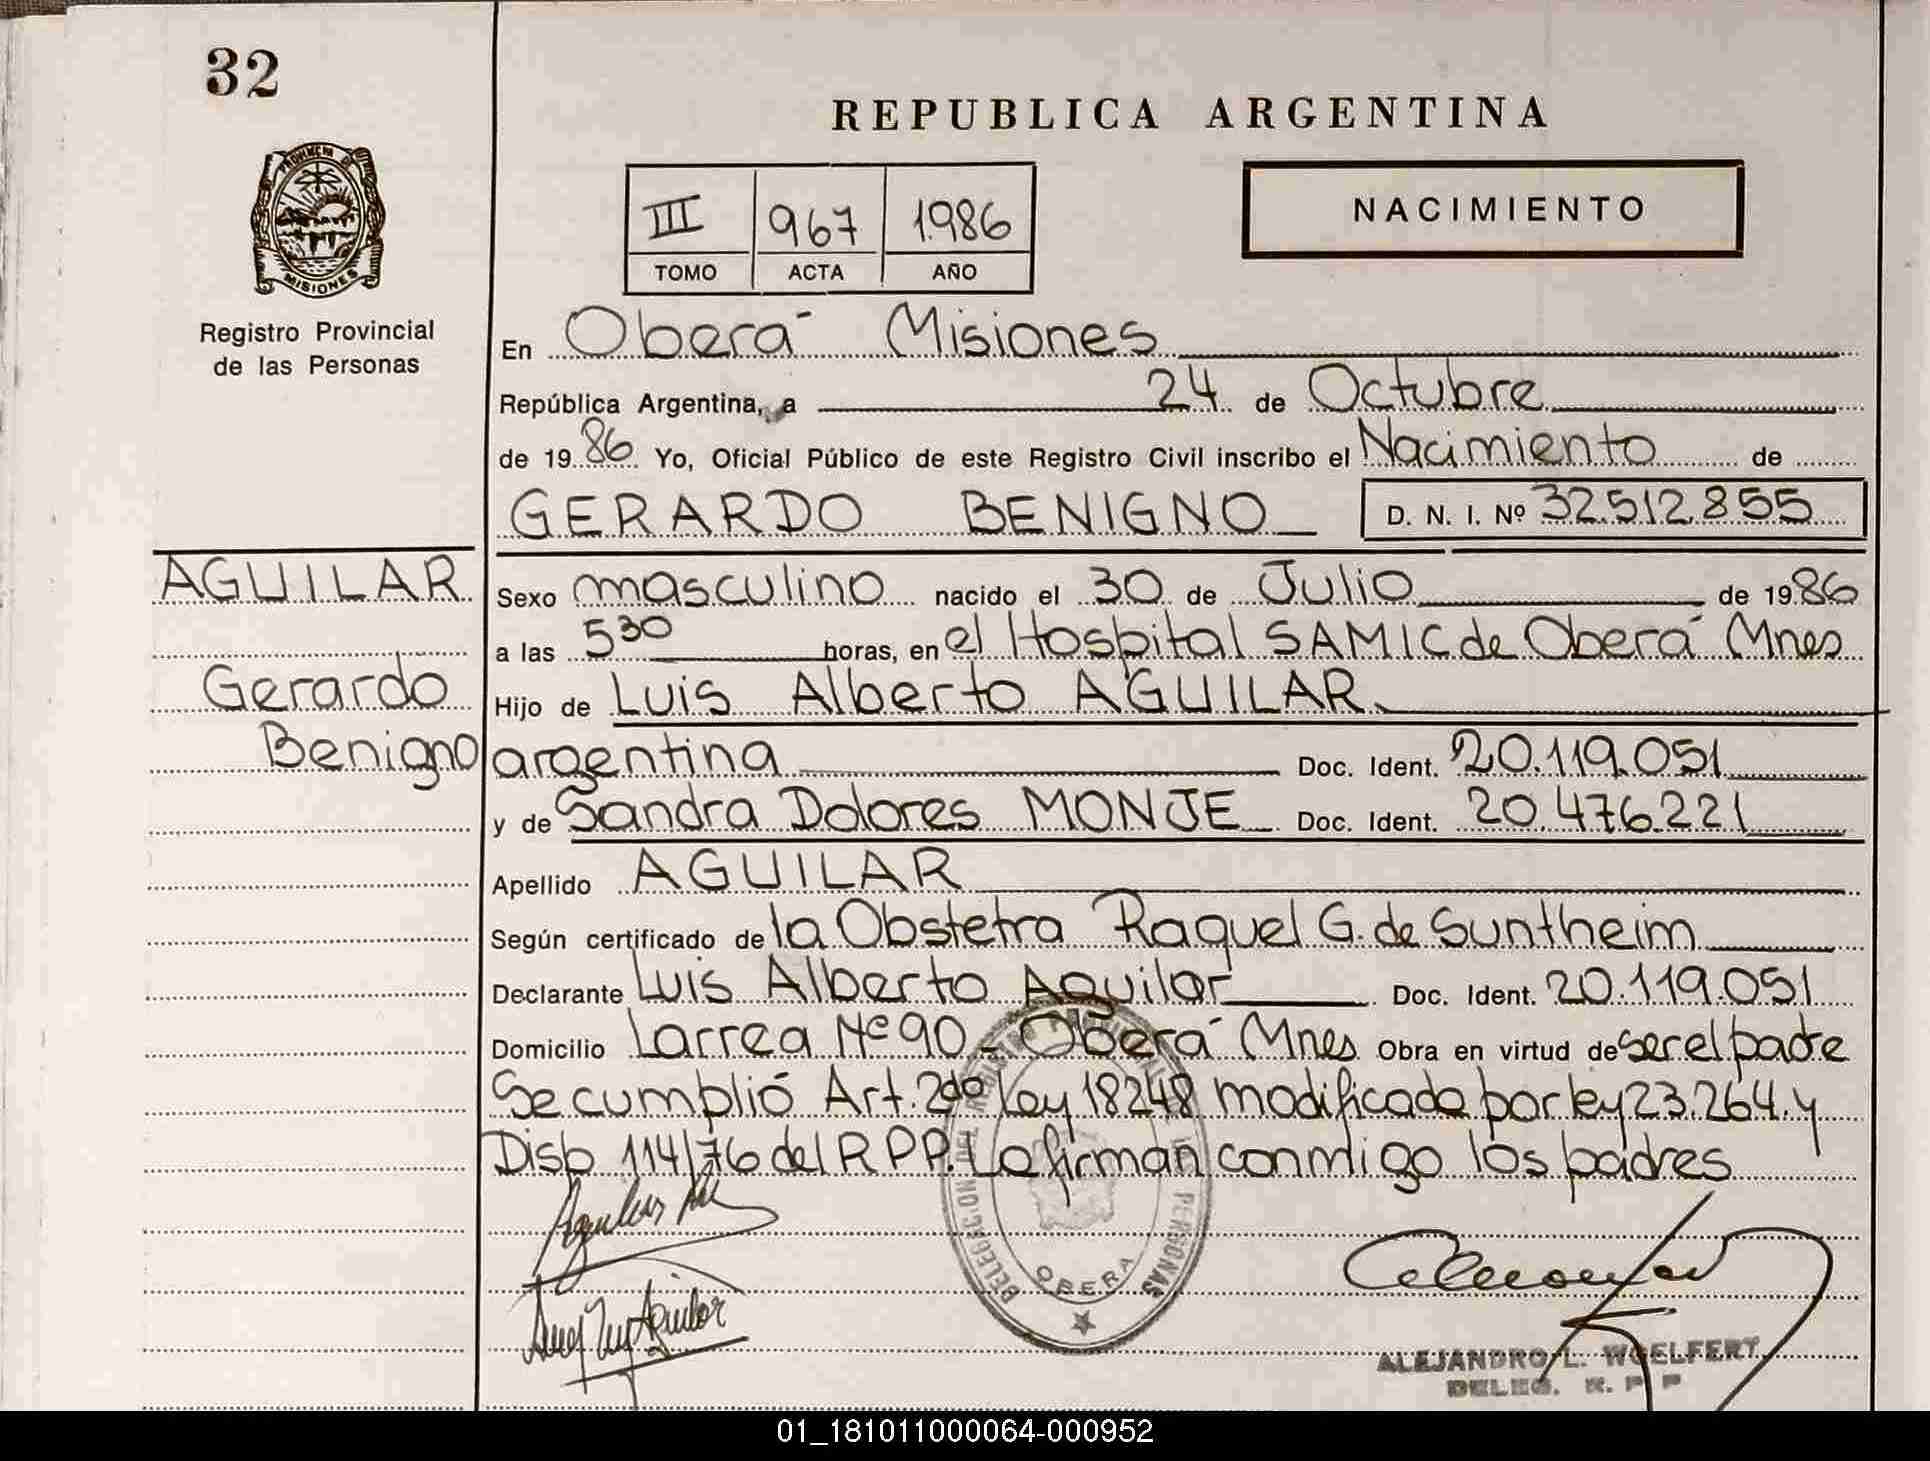 32
REPUBLICA ARGENTINA
PROVINCIA DE
MISIONES
Registro Provincial
de las Personas
III 967 1986
TOMO ACTA AÑO
NACIMIENTO
En Oberá Misiones
República Argentina, a 24 de Octubre
de 1986 Yo, Oficial Público de este Registro Civil inscribo el Nacimiento de
GERARDO BENIGNO D. N. I. Nº 32.512.855
AGUILAR
Gerardo
Benigno
Sexo masculino nacido el 30 de Julio de 1986
a las 5 30 horas, en el Hospital SAMIC de Oberá Mnes
Hijo de Luis Alberto AGUILAR
argentina Doc. Ident. 20.119.051
y de Sandra Dolores MONJE Doc. Ident. 20.476.221
Apellido AGUILAR
Según certificado de la Obstetra Raquel G. de Suntheim
Declarante Luis Alberto Aguilar Doc. Ident. 20.119.051
Domicilio Larrea Nº 90 - Oberá Mnes Obra en virtud de ser el padre
Se cumplió Art. 2do Ley 18248 modificada por ley 23.264 y
Disp 114/76 del R P P. La firman conmigo los padres
OBERA
PERSONAS
Aguilar
ALEJANDRO L. WOELFERT
DELEG. R. P P
01_181011000064-000952